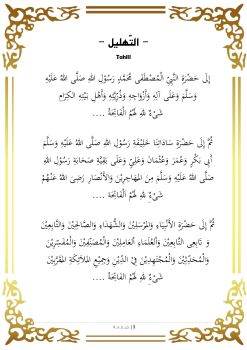 - التّهليل -
Tahlil
إِلَى حَضْرَةِ النَّبِيِّ الْمُصْطَفَى مُحَمَّدٍ رَسُوْلِ اللهِ صَلَّى اللهُ عَلَيْهِ
وَسَلَّمَ وَعَلَى آلِهِ وَأَزْوَاجِهِ وَذُرِّيَّتِهِ وَأَهْلِ بَيْتِهِ الكِرَامِ
شَيْءٌ لِلهِ لَهُمُ الْفَاتِحَةُ ....
ثُمَّ إِلَى حَضْرَةِ سَادَاتِنَا خَلِيْفَةِ رَسُوْلِ اللهِ صَلَّى اللهُ عَلَيْهِ وَسَلَّمَ
أَبِي بَكْرٍ وَعُمَرَ وَعُثْمَانَ وَعَلِيٍّ وَعَلَى بَقِيَّةِ صَحَابَةِ رَسُوْلِ اللهِ
صَلَّى اللهُ عَلَيْهِ وَسَلَّمَ مِنَ المُهَاجِرِيْنَ وَالأَنْصَارِ رَضِيَ اللهُ عَنْهُمْ
شَيْءٌ لِلهِ لَهُمُ الْفَاتِحَةُ ....
ثُمَّ إِلَى حَضْرَةِ الأَنْبِيَاءِ وَالمُرْسَلِيْنَ وَالشُّهَدَاءِ وَالصَّالِحِيْنَ وَالتَّابِعِيْنَ
وَ تَابِعِي التَّابِعِيْنَ وَالعُلَمَاءِ العَامِلِيْنَ وَالمُصَنِّفِيْنَ وَالمُفَسِّرِيْنَ
وَالمُحَدِّثِيْنَ وَالمُجْتَهِدِيْنَ فِي الدِّيْنِ وَجَمِيْعِ المَلَائِكَةِ المُقَرَّبِيْنَ
شَيْءٌ لِلهِ لَهُمُ الفَاتِحَةُ ....